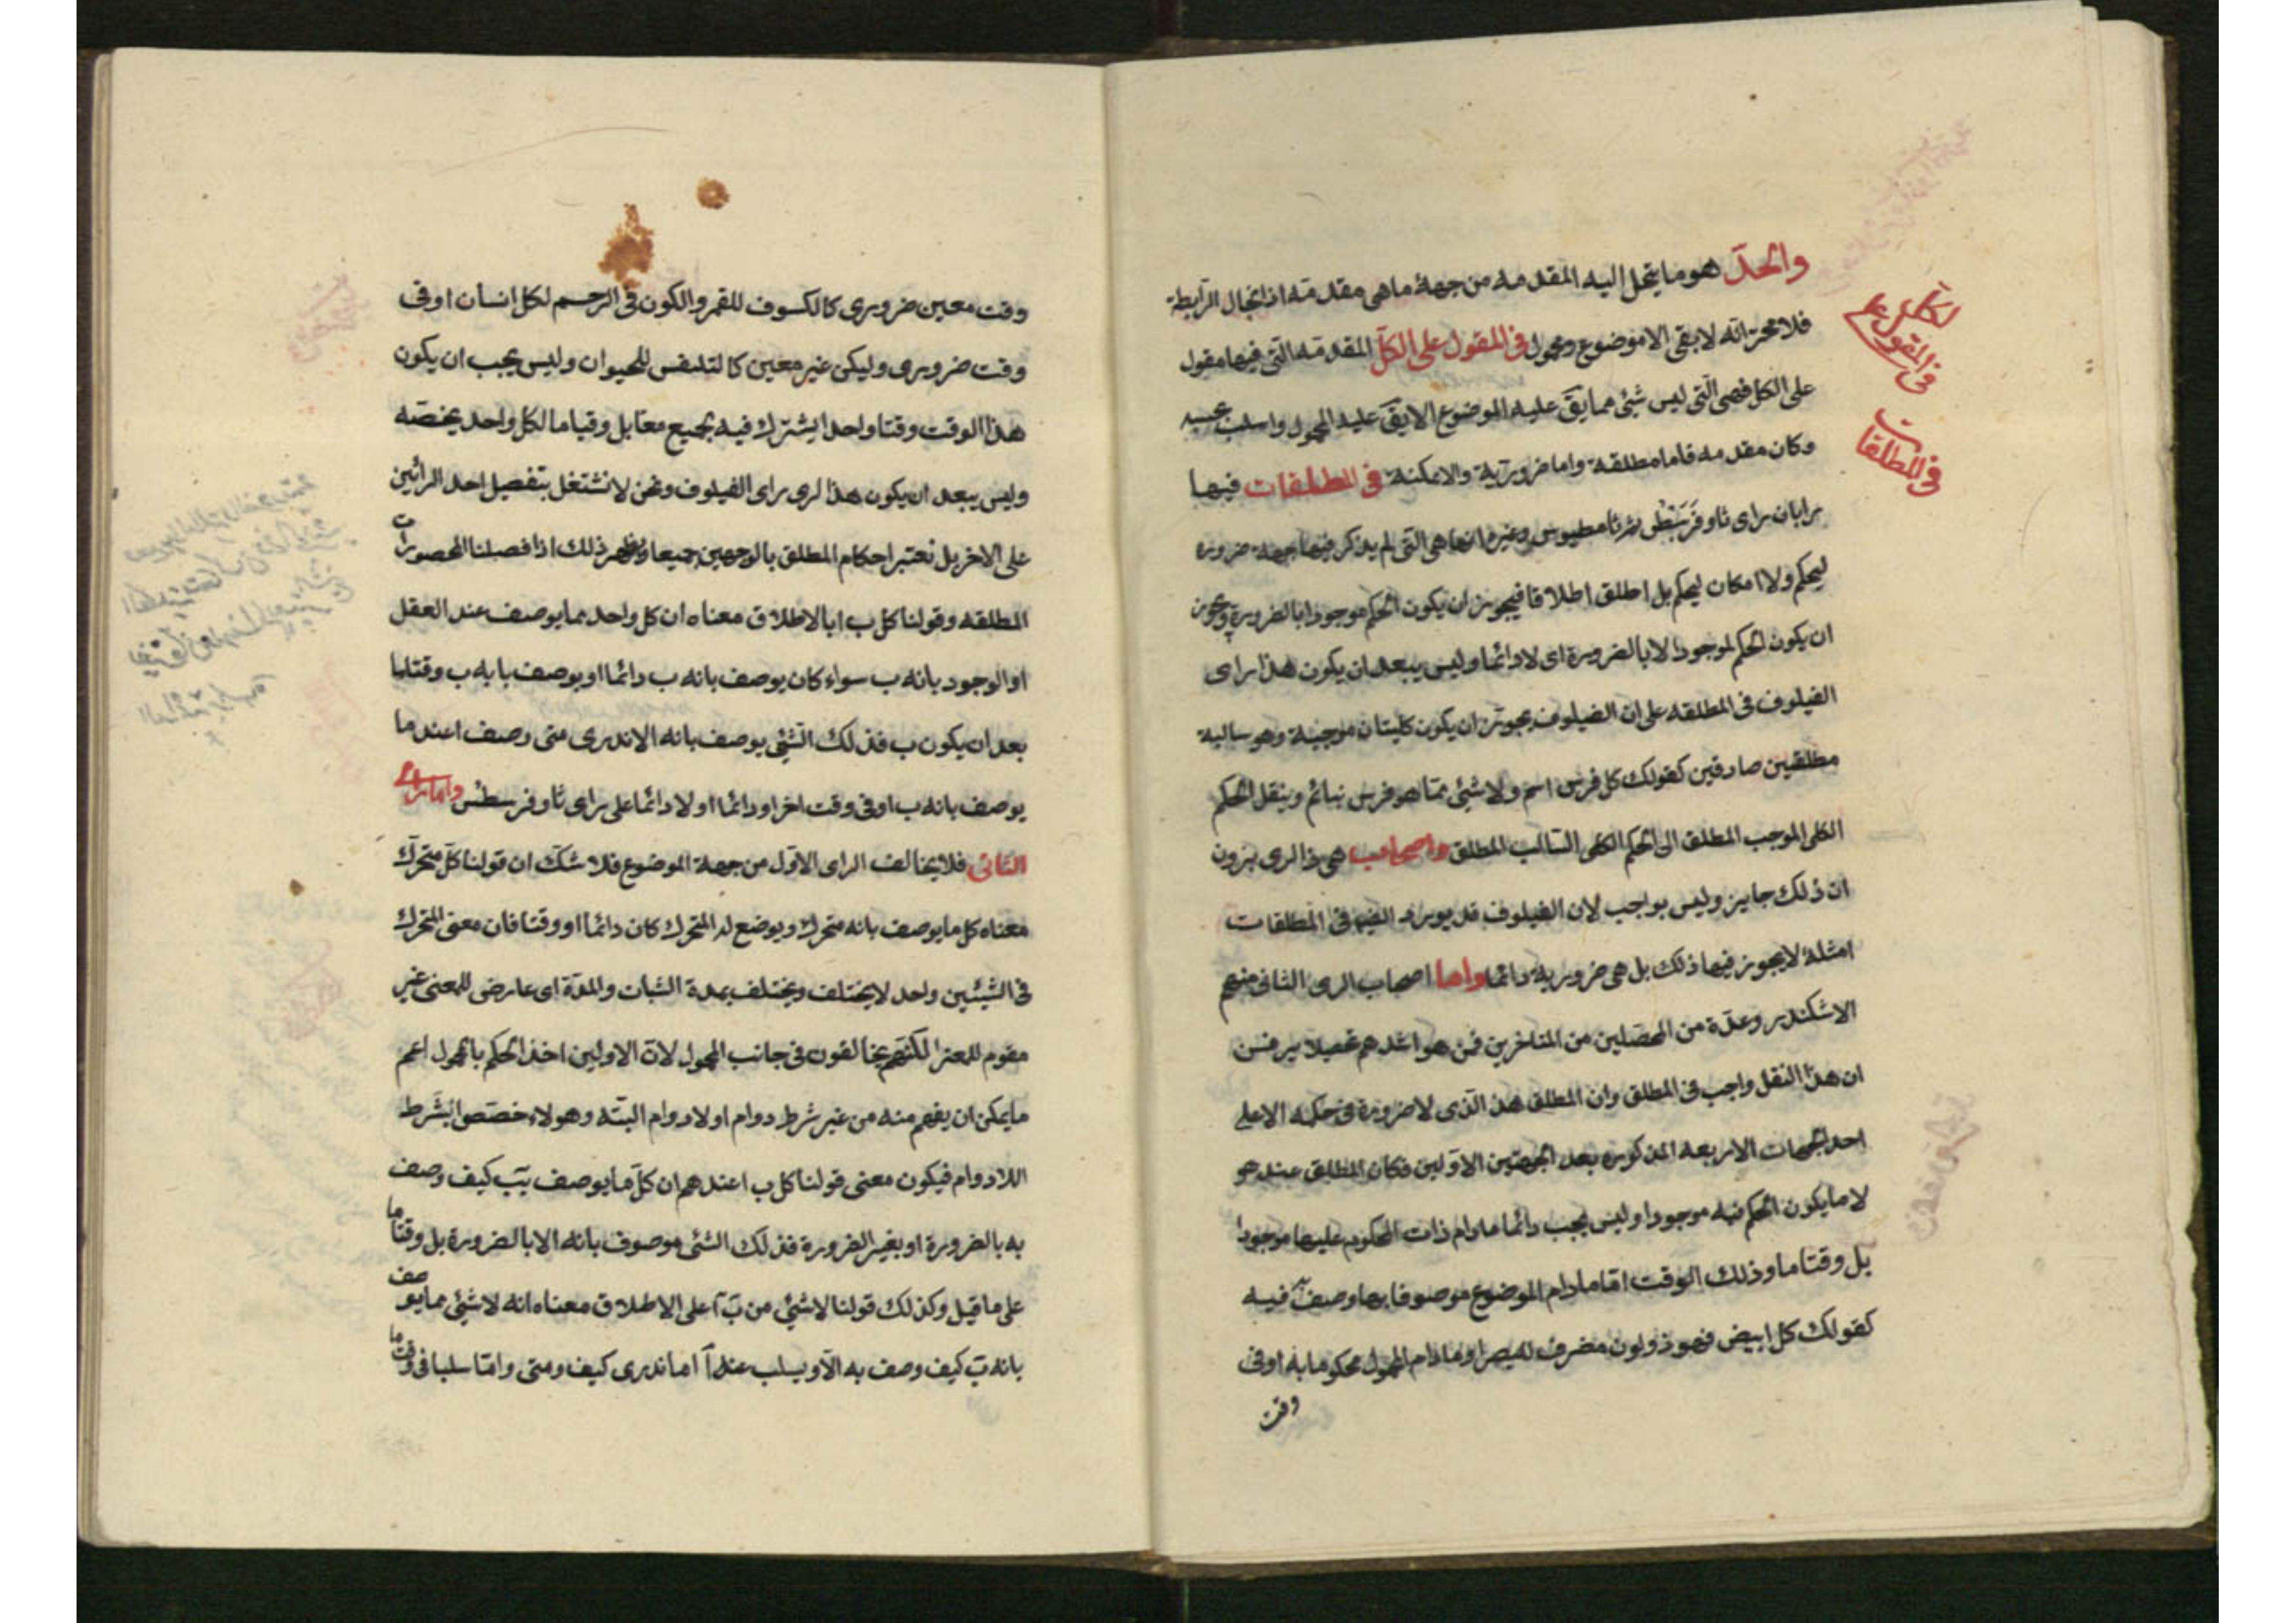 والحدّ هو ما ينحل إليه المقدمه من جهة ما هي مقدمة اذا انحال الرابطة
فلا محر انه لا بقى الا موضوع ومحمول في المقول على الكل المقدمة التي فيها مقول
على الكل فهي التي ليس شئ مما يق عليه الموضوع الا يق عليه المحمول واسلب عنه
وكان مقدمه فاما مطلقة واما ضرورية والامكنة في المطلقات فيها
رايان راى ثاوفرسطس ثم ثامطيوس وغيره انها هي التي لم يذكر فيها جهة ضرورة
ليحكم ولا امكان ليحكم بل اطلق اطلاقا فيجوز ان يكون الحكم موجودا بالضرورة ويجوز
ان يكون الحكم لموجودا لا بالضرورة اى لا دائما وليس يبعد ان يكون هذا راى
الفيلوف في المطلقه على ان الفيلوف يجوز ان يكون كليتان موجبة وهو سالبة
مطلقين صادقين كقولك كل فرس اسم ولا شئ مما هو فرس نبائم وينقل الحكم
الكلى الموجب المطلق الى الحكم الكلى السالب المطلق واصحاب هى ذا الرى يرون
ان ذلك جايز وليس بواجب لان الفيلوف قد يورد الض في المطلقات
امثلة لا يجوز فيها ذلك بل هى ضرورية دائما واما اصحاب الرى الثانى منهم
الاشكندر وعدة من المحصلين من المتاخرين فمن هو اشدهم تحصيلا يرفن
ان هذا النقل واجب في المطلق وان المطلق هذ الذى لا ضرورة في حكمه الا على
احد الجهات الاربعه المذكوره بعد الجهتين الاولين فكان المطلق عند هو
لا ما يكون الحكم فيه موجودا وليس يجب دائما ما دام ذات المحكوم عليها موجودا
بل وقتا ما وذلك الوقت اما مادام الموضوع موصوفا بما وصف به فيه
كقولك كل ابيض فهو ذو لون مفرق للبصر او مادام المحمول محكوما به او فى
وقت
في المقول على
الكل
في المطلقات
وقت معين ضرورى كالكسوف للقمر والكون في الرحم لكل انسان او فى
وقت ضرورى وليكن غير معين كالتنفس للحيوان وليس يجب ان يكون
هذا الوقت وقتا واحدا يشترك فيه جميع معا بل وقيا ما لكل واحد يخصه
وليس يبعد ان يكون هذا لرى راى الفيلوف ونحن لا نشتغل بتفصيل احد الرائين
على الاخر بل نعتبر احكام المطلق بالوجهين جميعا ويظهر ذلك اذا فصلنا المحصورات
المطلقه وقولنا كل ب ا بالاطلاق معناه ان كل واحد مما يوصف عند العقل
او الوجود بانه ب سواء كان يوصف بانه ب دائما او يوصف بابه ب وقتاما
بعد ان يكون ب فذلك الشئ يوصف بانه ا لا ندرى متى وصف ا عند ما
يوصف بانه ب او فى وقت اخر او دائما او لا دائما على راى ثاوفرسطس واما راى
الثانى فلا يخالف الراى الاول من جهة الموضوع فلا شك ان قولنا كل متحرك
معناه كل ما يوصف بانه متحرك ويوضع له المتحرك كان دائما او وقتا فان معنى المتحرك
في الشيئين واحد لا يختلف ويختلف بمدة الثبات والمدة اى عارض للمعنى غير
مقوم للمعنر لكنهم يخالفون في جانب المحمول لان الاولين اخذ الحكم بالمحمول اعم
ما يمكن ان يفهم منه من غير شرط دوام او لا دوام البته وهولاء خصصوا بشرط
اللادوام فيكون معنى قولنا كل ب ا عندهم ان كل ما يوصف بب كيف وصف
به بالضرورة او بغير الضرورة فذلك الشئ موصوف بانه ا لا بالضرورة بل وقتا ما
على ما قيل وكذلك قولنا لا شئ من ب ا على الاطلاق معناه انه لا شئ مما يوصف
بانه ب كيف وصف به الا ويسلب عنه ا اما ندرى كيف ومتى واما سلبا فى وقت ما